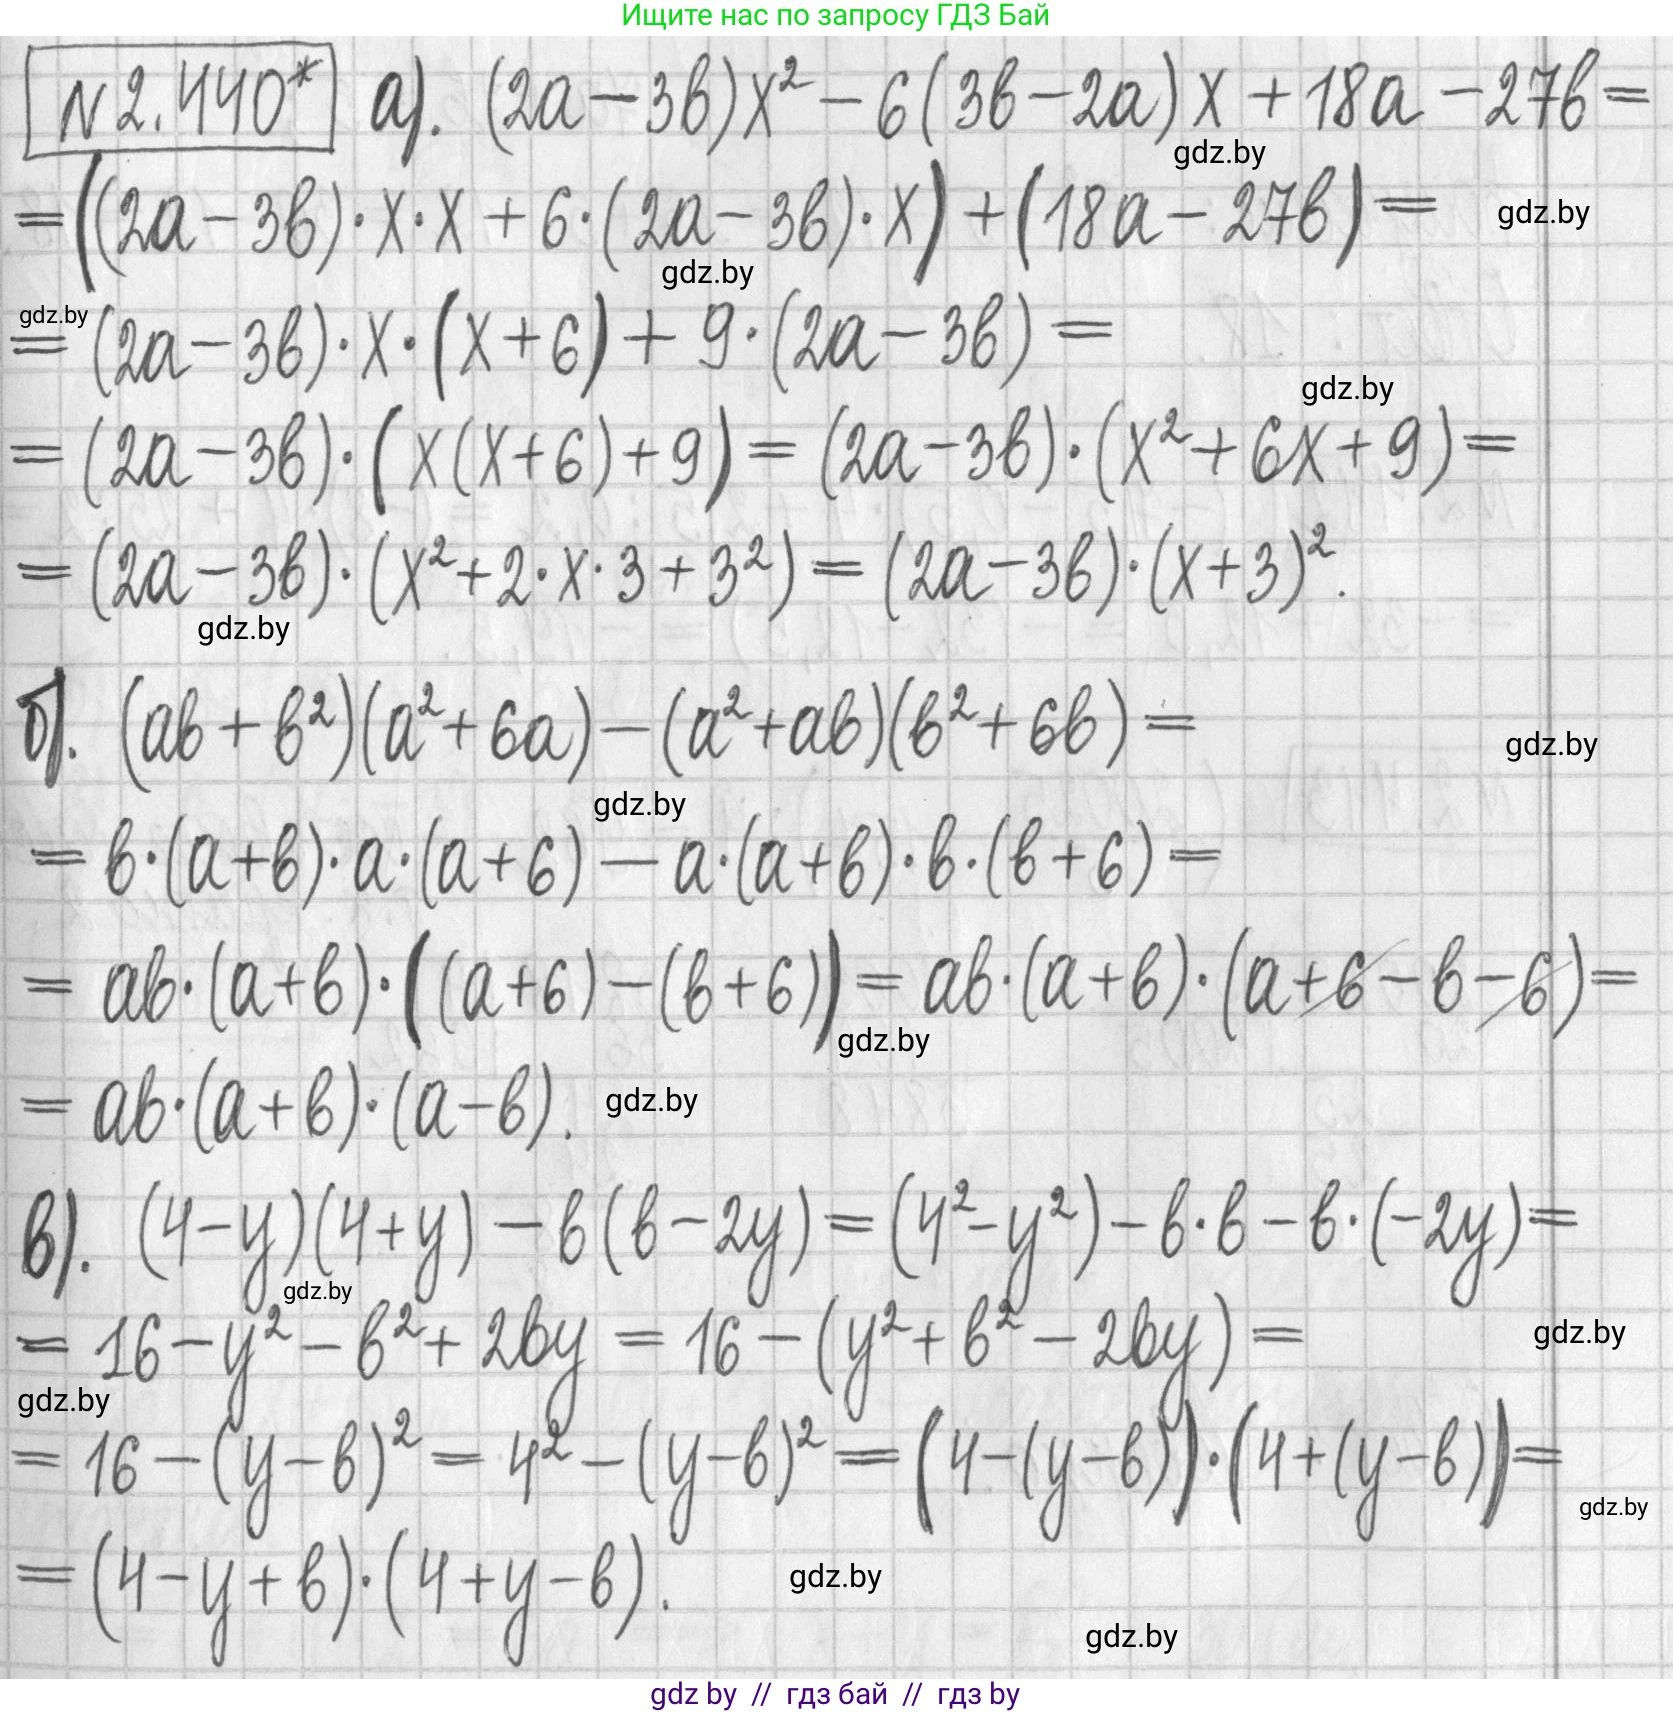 Ищите нас по запросу ГДЗ Бай
N 2.440* а). (2a − 3b)x² − 6(3b − 2a)x + 18a − 27b =
gdz.by
= ((2a − 3b)·x·x + 6·(2a − 3b)·x) + (18a − 27b) =
gdz.by
gdz.by
gdz.by
= (2a − 3b)·x·(x + 6) + 9·(2a − 3b) =
gdz.by
= (2a − 3b)·(x(x + 6) + 9) = (2a − 3b)·(x² + 6x + 9) =
= (2a − 3b)·(x² + 2·x·3 + 3²) = (2a − 3b)·(x + 3)².
gdz.by
б). (ab + b²)(a² + 6a) − (a² + ab)(b² + 6b) =
gdz.by
gdz.by
= b·(a + b)·a·(a + 6) − a·(a + b)·b·(b + 6) =
= ab·(a + b)·((a + 6) − (b + 6)) = ab·(a + b)·(a + 6 − b − 6) =
gdz.by
= ab·(a + b)·(a − b).
gdz.by
в). (4 − y)(4 + y) − b(b − 2y) = (4² − y²) − b·b − b·(−2y) =
gdz.by
= 16 − y² − b² + 2by = 16 − (y² + b² − 2by) =
gdz.by
gdz.by
= 16 − (y − b)² = 4² − (y − b)² = (4 − (y − b))·(4 + (y − b)) =
gdz.by
= (4 − y + b)·(4 + y − b).
gdz.by
gdz.by
gdz by // гдз бай // гдз by